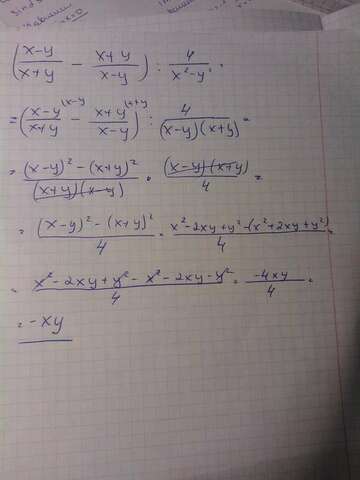 (x-y/x+y - x+y/x-y) : 4/x²-y² =
= (x-y/x+y ^(x-y - x+y/x-y ^(x+y) : 4/(x-y)(x+y) =
= (x-y)² - (x+y)²/(x+y)(x-y) · (x-y)(x+y)/4 =
= (x-y)² - (x+y)²/4 = x²-2xy+y²-(x²+2xy+y²)/4 =
= x²-2xy+y²-x²-2xy-y²/4 = -4xy/4 =
= -xy